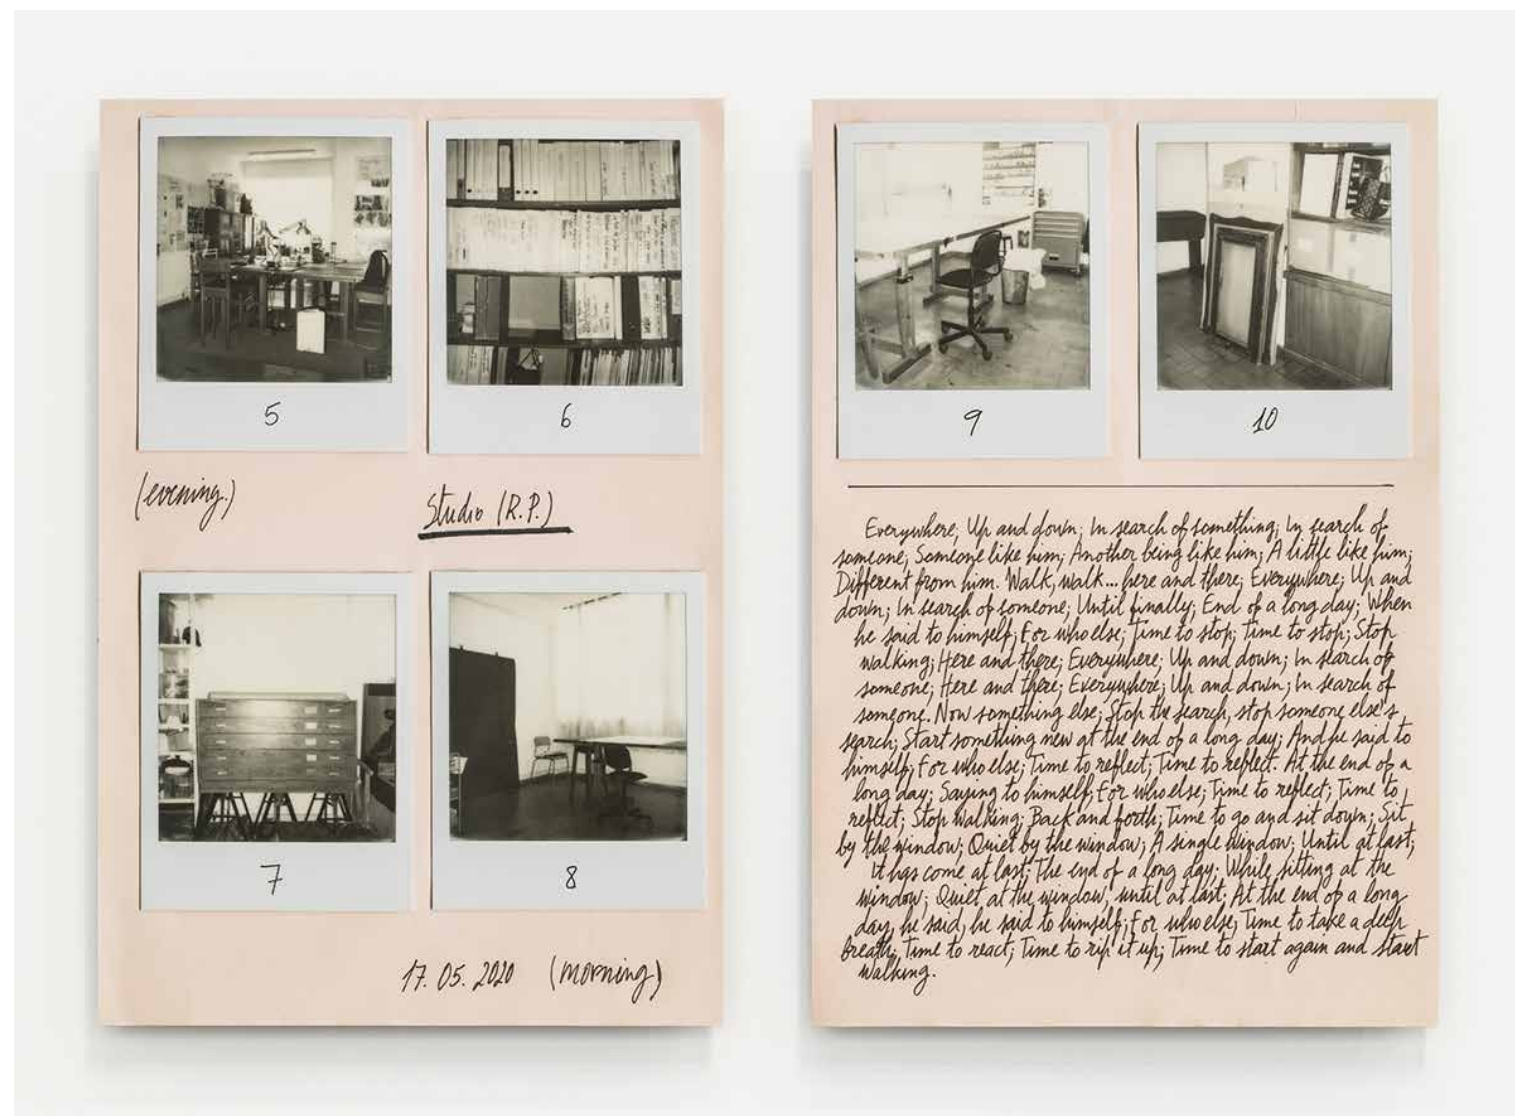 5
6
(evening.)
Studio (R.P.)
7
8
17. 05. 2020 (morning)
9
10
Everywhere; Up and down; In search of something; In search of
someone; Someone like him; Another being like him; A little like him;
Different from him. Walk, walk... here and there; Everywhere; Up and
down; In search of someone; Until finally; End of a long day; When
he said to himself; For who else; Time to stop; Time to stop; Stop
walking; Here and there; Everywhere; Up and down; In search of
someone; Here and there; Everywhere; Up and down; In search of
someone. Now something else; Stop the search, stop someone else's
search; Start something new at the end of a long day; And he said to
himself; For who else; Time to reflect; Time to reflect. At the end of a
long day; Saying to himself; For who else; Time to reflect; Time to
reflect; Stop walking; Back and forth; Time to go and sit down; Sit
by the window; Quiet by the window; A single window; Until at last;
It has come at last; The end of a long day; While sitting at the
window; Quiet at the window, until at last; At the end of a long
day, he said, he said to himself; For who else; Time to take a deep
breath; Time to react; Time to rip it up; Time to start again and start
walking.